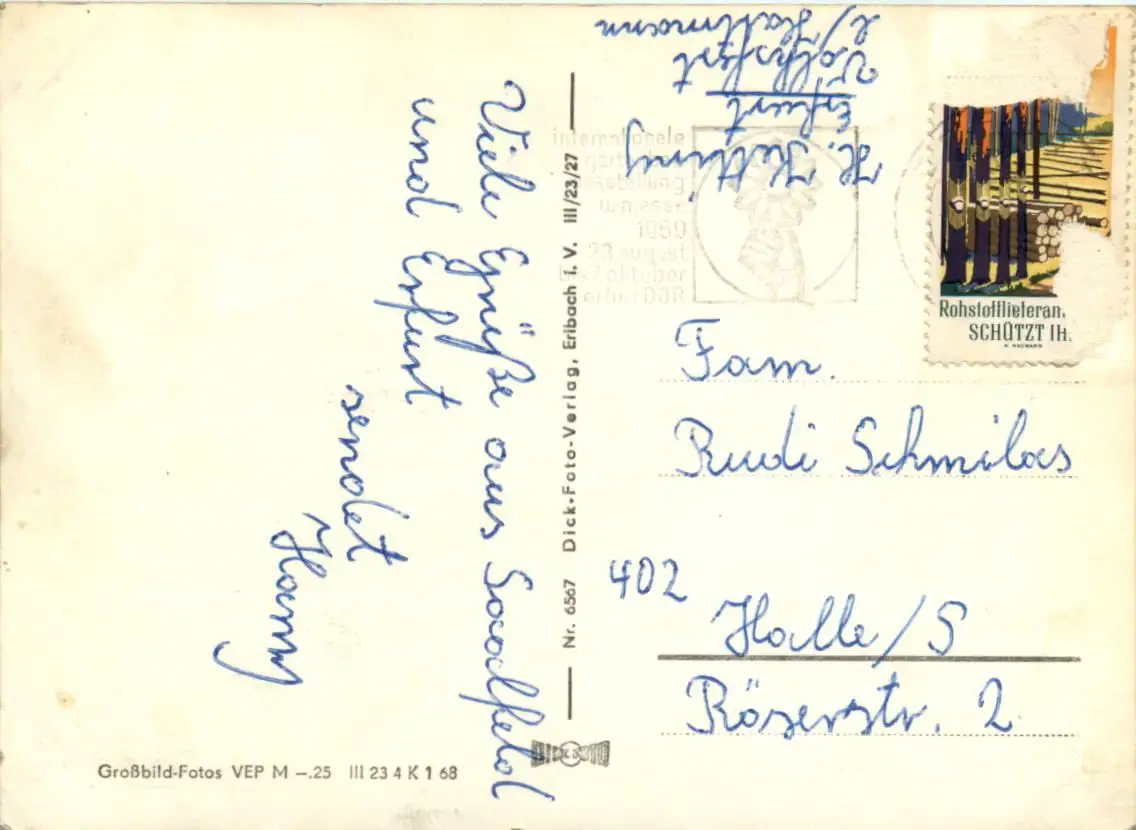 Viele Grüße aus Saalfeld
und Erfurt
sendet
Hansy
Erfurt
internationale
1969
23. august
bis 7. oktober
erfurt DDR
Rohstofflieferan
SCHÜTZT IH
Fam.
Rudi Schmilas
402
Halle/S
Röserstr. 2
Nr. 6567 Dick-Foto-Verlag, Erlbach i. V. III/23/27
DICK FOTO
Großbild-Fotos VEP M —.25 III 23 4 K 1 68